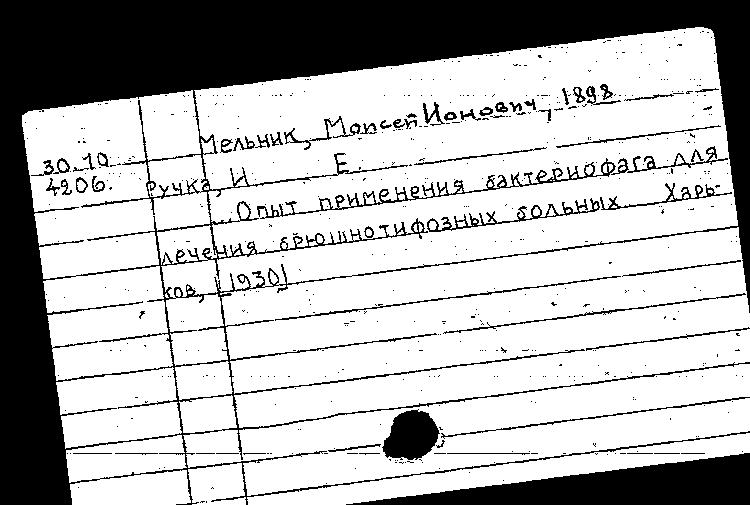 Мельник, Моисей Ионович, 1898
30.10
4206.
Ручка, И Е.
...Опыт применения бактериофага для
лечения брюшнотифозных больных Харь-
ков, [1930]